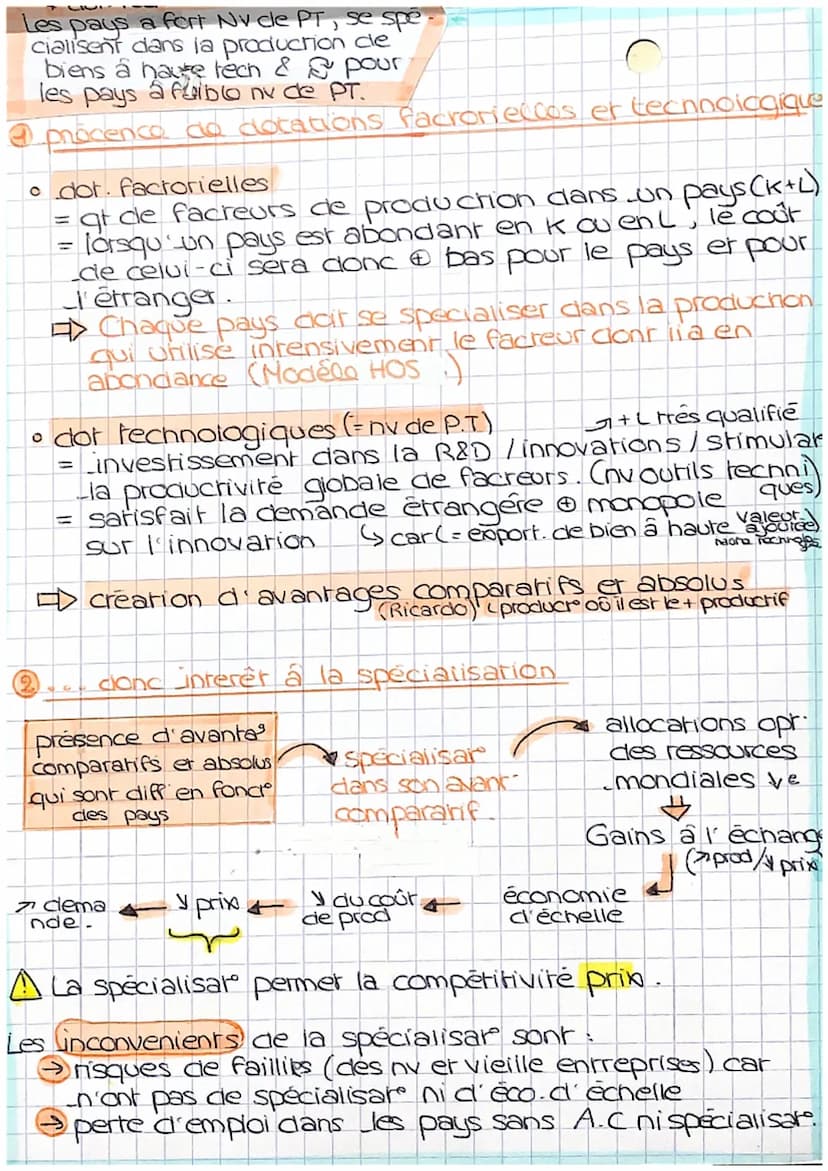 Les pays a fort Nv de PT, se spé-
cialisent dans la production de
biens â haute tech & pour
les pays â faible nv de PT.
1 présence de dotations factorielles et technologique
dot. factorielles
= qt de facteurs de production dans un pays (K+L)
= lorsqu'un pays est abondant en K ou en L, le coût
de celui-ci sera donc ⊕ bas pour le pays et pour
l'étranger.
⇨ Chaque pays doit se specialiser dans la production
qui utilise intensivement le facteur dont il a en
abondance (Modéle HOS.)
dot technologiques (= nv de P.T) ↗ + L trés qualifié
= investissement dans la R&D / innovations / stimular
la productivité globale de facteurs. (nv outils techni
ques)
= satisfait la demande étrangére ⊕ monopole
sur l'innovation ↳ car (= export. de bien â haute valeur ajoutée)
⇨ création d'avantages comparatifs et absolus
(Ricardo) (product° où il est le + productif
2 ... donc interêt â la spécialisation
présence d'avantag
comparatifs et absolus
qui sont diff en fonct°
des pays
spécialisat°
dans son avant-
comparatif.
allocations opt.
des ressources
mondiales ve
Gains â l'échang
(↗prod/↘prix
économie
d'échelle
↘ du coût
de prod
↘ prix
↗ dema
nde.
⚠ La spécialisat° permet la compétitivité prix.
Les inconvenients de la spécialisat° sont :
→ risques de faillites (des nv et vieille entreprises) car
n'ont pas de spécialisat° ni d'éco. d'échelle
→ perte d'emploi dans les pays sans A.C ni spécialisat°.